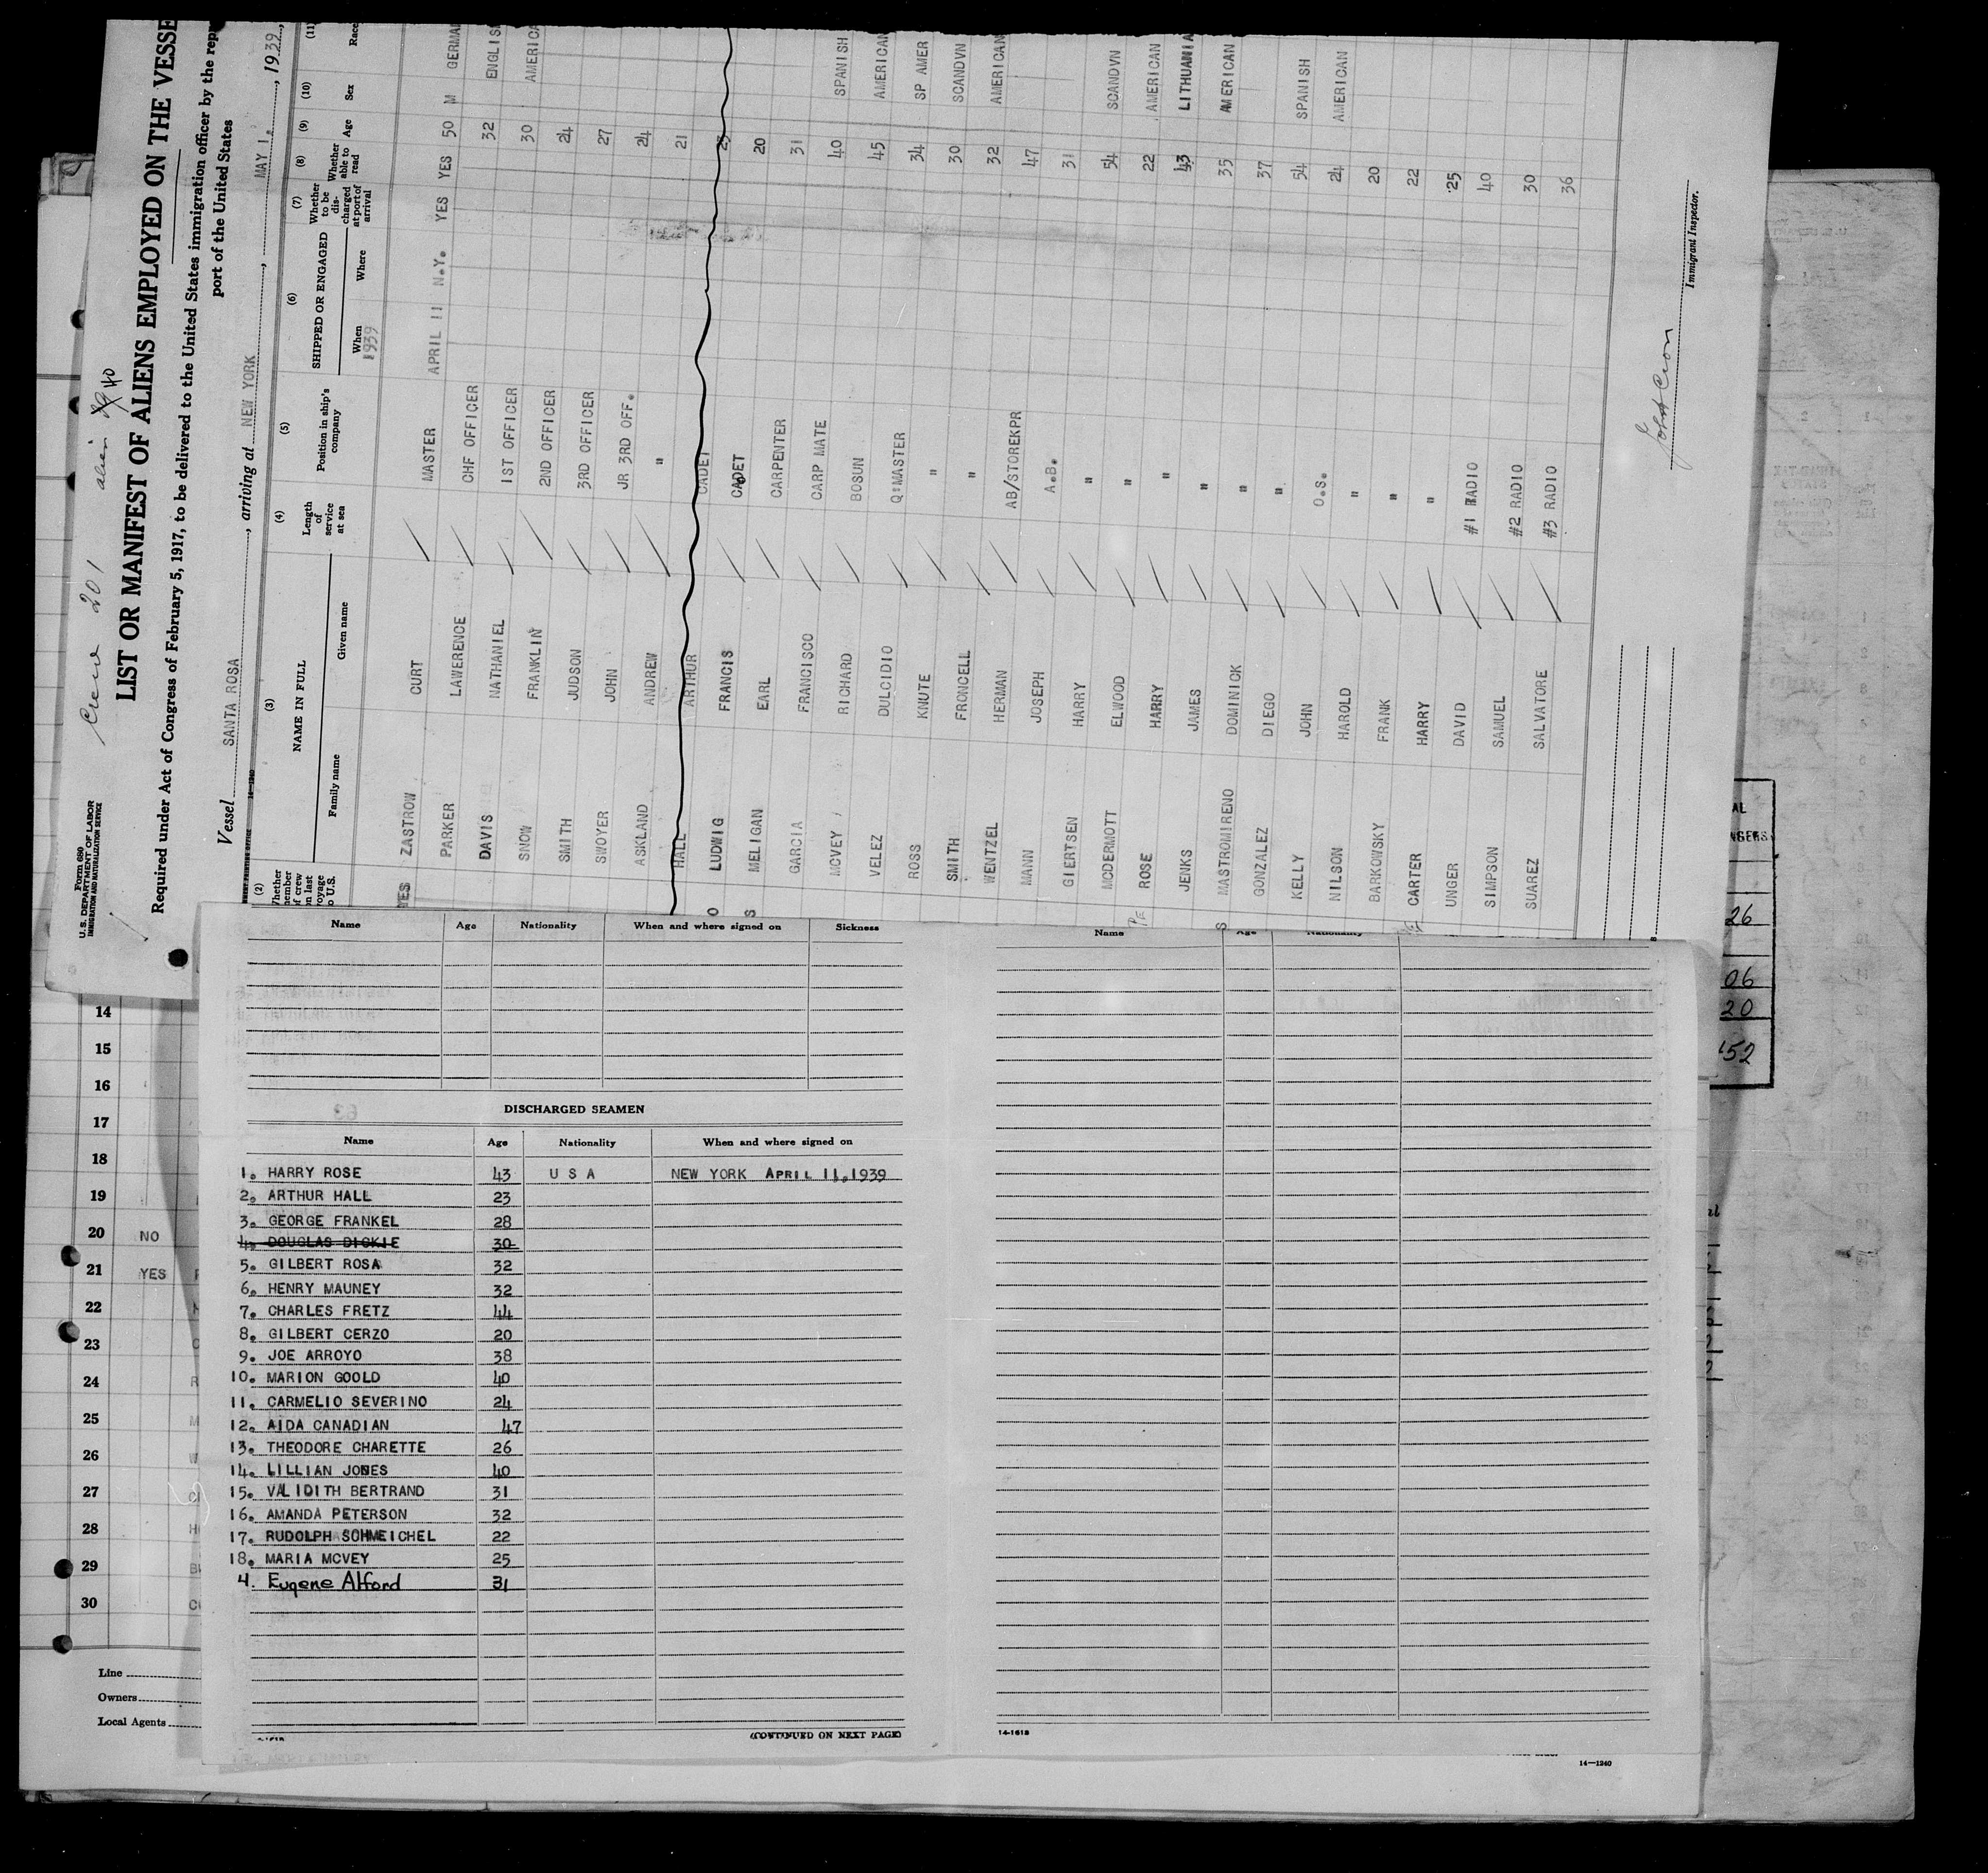 Crew 201 alien 40
Form 680
U.S. DEPARTMENT OF LABOR
IMMIGRATION AND NATURALIZATION SERVICE
LIST OR MANIFEST OF ALIENS EMPLOYED ON THE VESSE
Required under Act of Congress of February 5, 1917, to be delivered to the United States immigration officer by the rep
port of the United States
Vessel SANTA ROSA, arriving at NEW YORK, MAY 1., 1939,
(2) (3) (4) (5) (6) (7) (8) (9) (10) (11)
NAME IN FULL
Family name Given name
Length of service at sea
Position in ship's company
SHIPPED OR ENGAGED
When Where
1939
Whether to be discharged at port of arrival
Whether able to read
Age Sex Race
YES ZASTROW CURT MASTER APRIL 11 N.Y. YES YES 50 M GERMA
PARKER LAWERENCE CHF OFFICER 32 ENGLIS
DAVIS NATHANIEL 1ST OFFICER 30 AMERICA
SNOW FRANKLIN 2ND OFFICER 24
SMITH JUDSON 3RD OFFICER 27
SWOYER JOHN JR 3RD OFF. 24
ASKLAND ANDREW " 21
HALL ARTHUR CADET 23
LUDWIG FRANCIS CADET 20
MELIGAN EARL CARPENTER 31
GARCIA FRANCISCO CARP MATE 40 SPANISH
MCVEY RICHARD BOSUN 45 AMERICAN
VELEZ DULCIDIO Q:MASTER 34 SP AMER
ROSS KNUTE " 30 SCANDVN
SMITH FRONCELL " 32 AMERICAN
WENTZEL HERMAN AB/STOREKPR 47
MANN JOSEPH A.B. 31
GIERTSEN HARRY " 54 SCANDVN
MCDERMOTT ELWOOD " 22 AMERICAN
ROSE HARRY " 43 LITHUANIA
JENKS JAMES " 35 AMERICAN
MASTROMIRENO DOMINICK " 37
GONZALEZ DIEGO " 54 SPANISH
KELLY JOHN O.S. 24 AMERICAN
NILSON HAROLD " 20
BARKOWSKY FRANK " 22
CARTER HARRY " 25
UNGER DAVID #1 RADIO 40
SIMPSON SAMUEL #2 RADIO 30
SUAREZ SALVATORE #3 RADIO 36
Immigrant Inspector.
Name Age Nationality When and where signed on Sickness
Name Age Nationality
DISCHARGED SEAMEN
Name Age Nationality When and where signed on
1. HARRY ROSE 43 U S A NEW YORK APRIL 11,1939
2. ARTHUR HALL 23
3. GEORGE FRANKEL 28
4. DOUGLAS DICKIE 30
5. GILBERT ROSA 32
6. HENRY MAUNEY 32
7. CHARLES FRETZ 44
8. GILBERT CERZO 20
9. JOE ARROYO 38
10. MARION GOOLD 40
11. CARMELIO SEVERINO 24
12. AIDA CANADIAN 47
13. THEODORE CHARETTE 26
14. LILLIAN JONES 40
15. VALIDITH BERTRAND 31
16. AMANDA PETERSON 32
17. RUDOLPH SCHMEICHEL 22
18. MARIA MCVEY 25
4. Eugene Alford 31
(CONTINUED ON NEXT PAGE)
14-1618
14—1240
14
15
16
17
18
19
20 NO
21 YES
22
23
24
25
26
27
28
29
30
Line
Owners
Local Agents
AL
NGERS
26
06
20
52